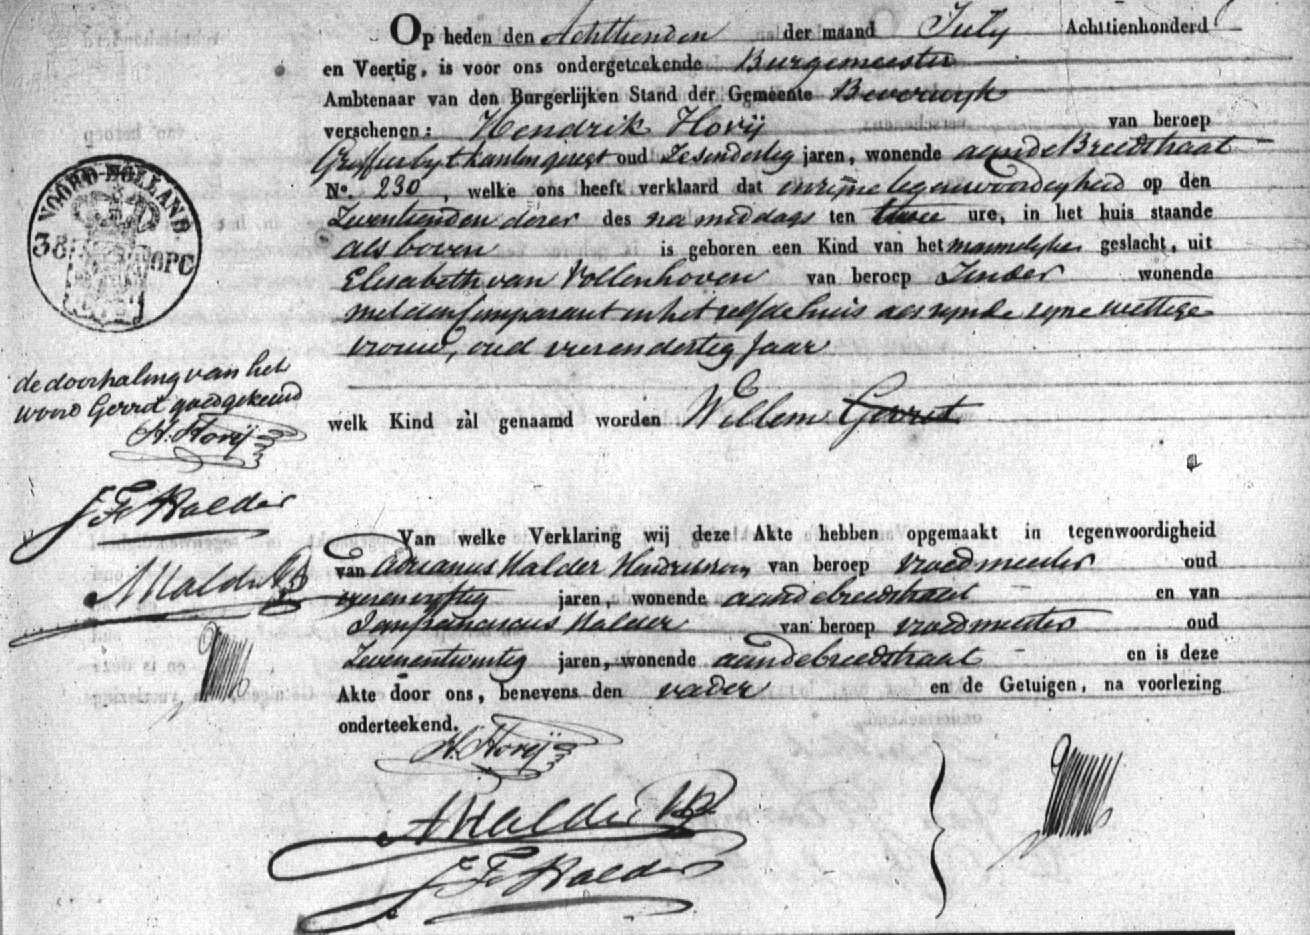 Op heden den Achttienden der maand July Achttienhonderd
en Veertig, is voor ons ondergeteekende Burgemeester
Ambtenaar van den Burgerlijken Stand der Gemeente Beverwyk
verschenen: Hendrik Hovij van beroep
oud Zesendertig jaren, wonende aan de Breedstraat
No. 230, welke ons heeft verklaard dat in zijne tegenwoordigheid op den
Zeventienden dezer des na middags ten twee ure, in het huis staande
als boven is geboren een Kind van het mannelijke geslacht, uit
Elisabeth van Vollenhoven van beroep zonder wonende
met den Comparant in het zelfde huis als zynde zyne wettige
vrouw, oud vierendertig Jaar
welk Kind zal genaamd worden Willem Gerrit
NOORD-HOLLAND.
38 OPC
de doorhaling van het
woord Gerrit goedgekeurd
H. Hovij
J F Halder
A Halder
Van welke Verklaring wij deze Akte hebben opgemaakt in tegenwoordigheid
van Adrianus Halder Hendrikszoon van beroep vroedmeester oud
jaren, wonende aan de breedstraat en van
Jan franciscus Halder van beroep vroedmeester oud
Zevenentwintig jaren, wonende aan de breedstraat en is deze
Akte door ons, benevens den vader en de Getuigen, na voorlezing
onderteekend.
H. Hovij
A Halder
J F Halder